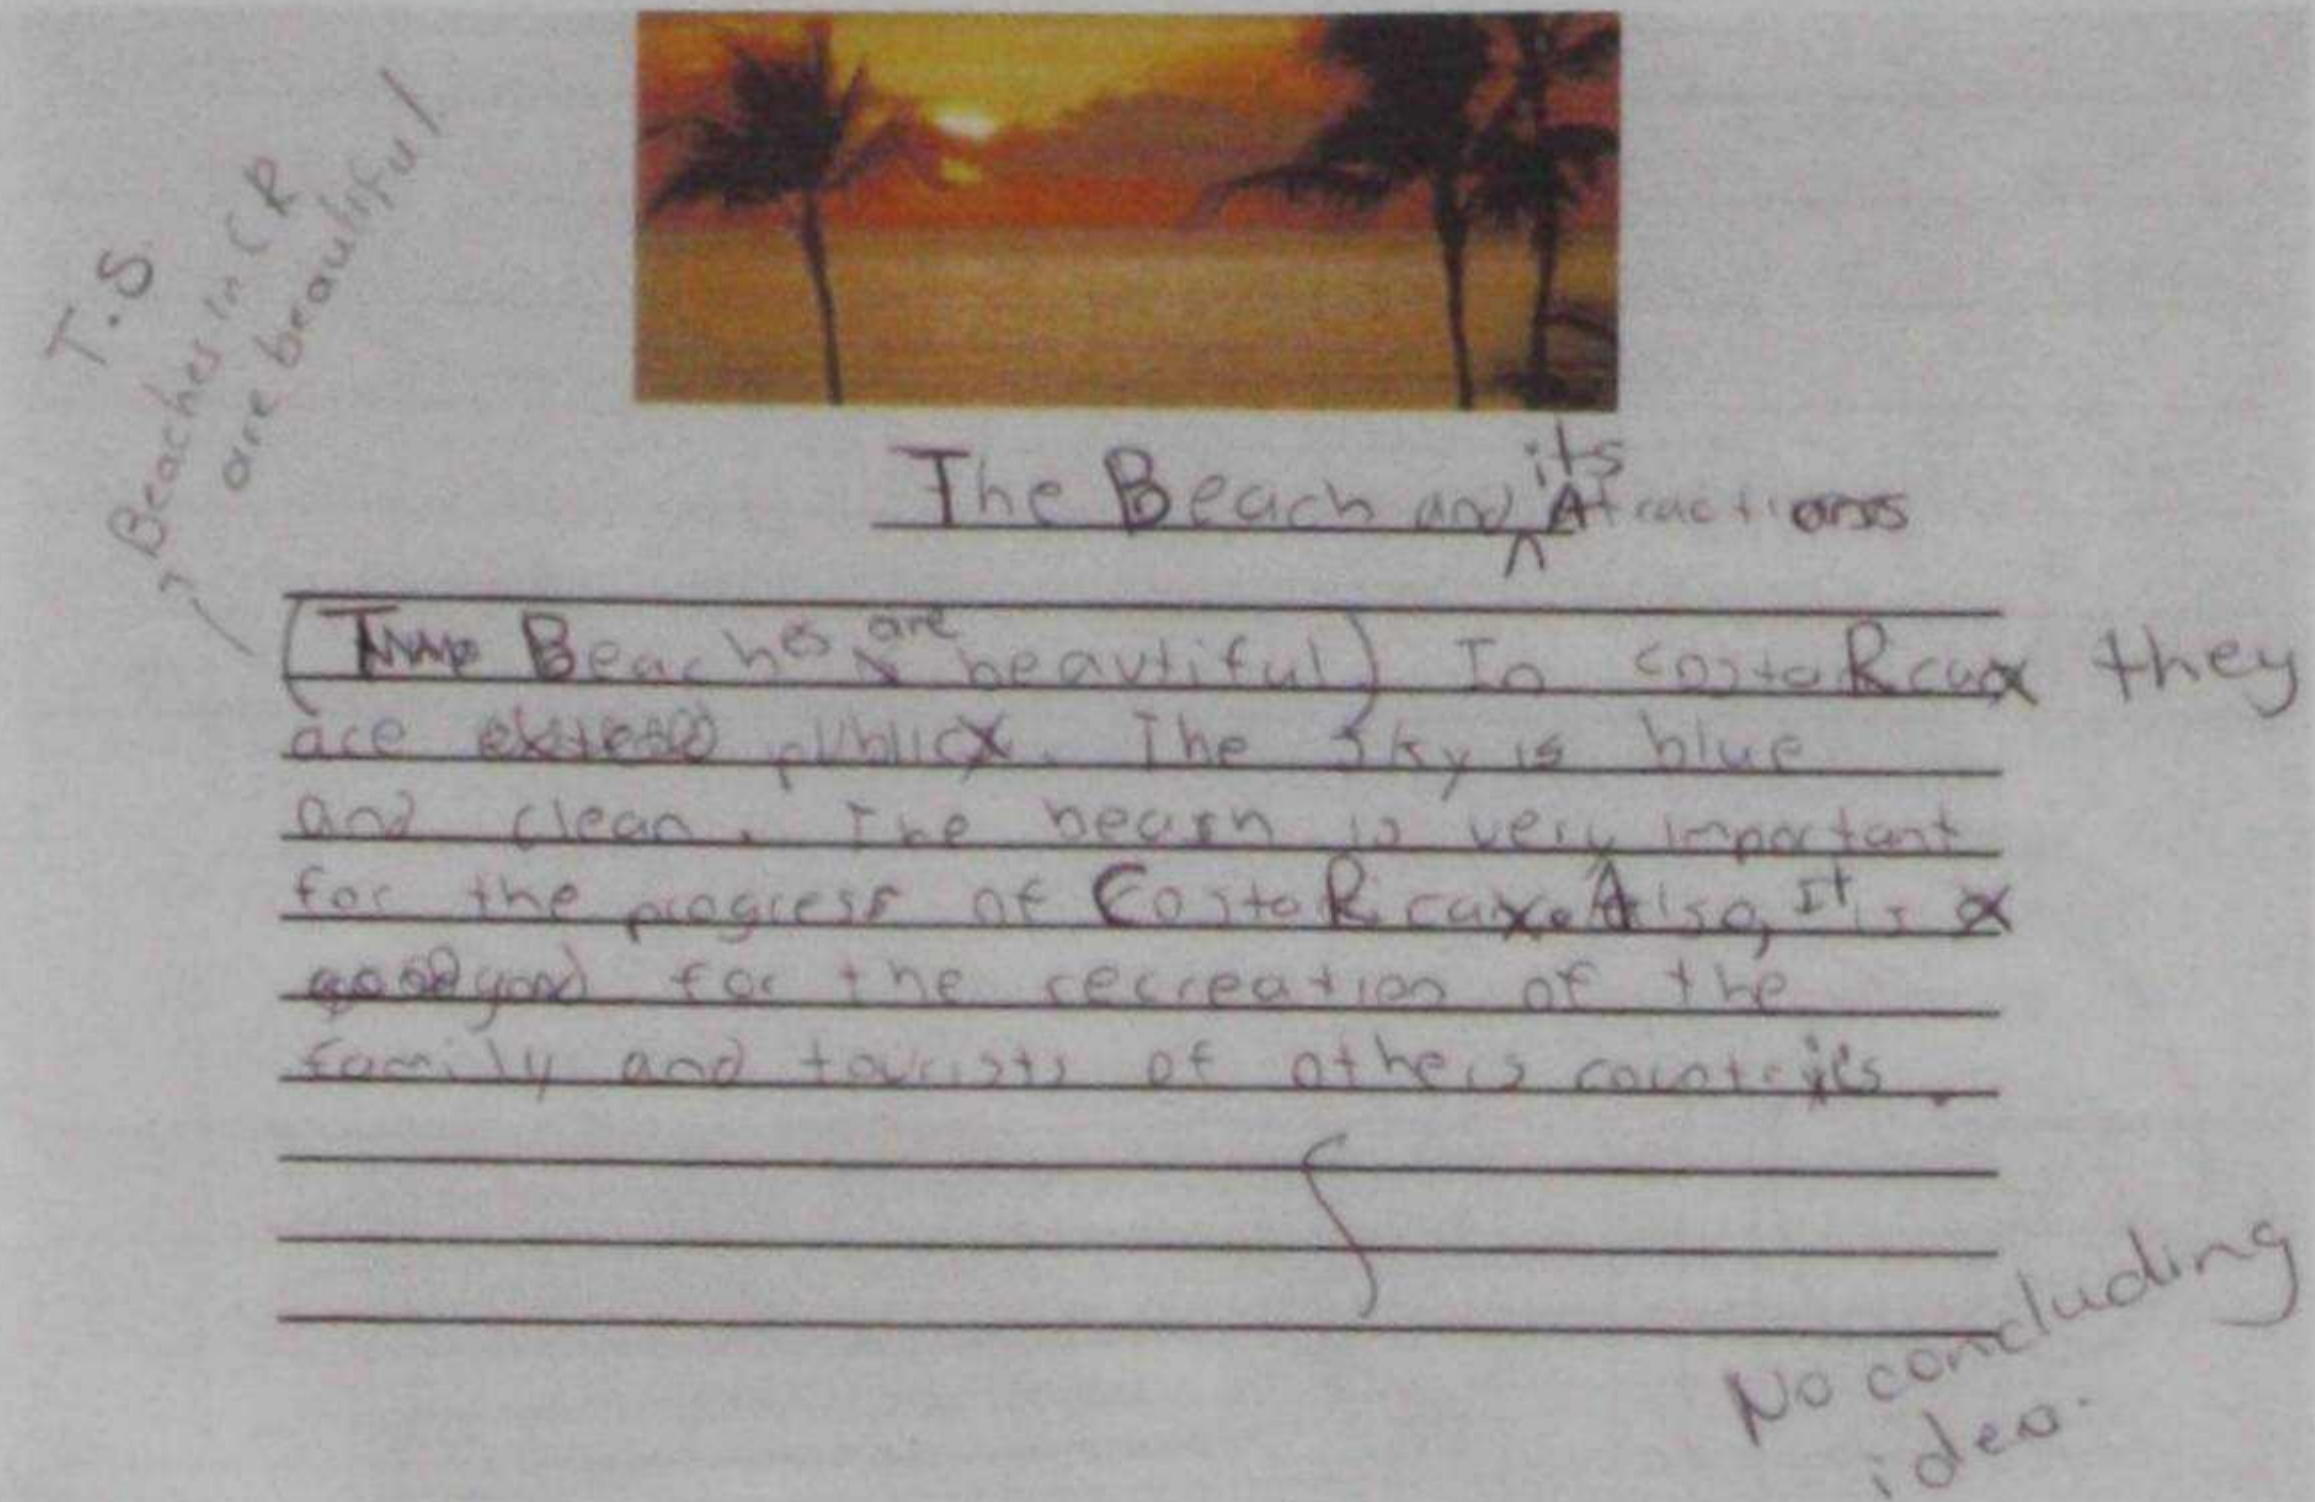 T.S
Beaches in CR
are beautiful
its
The Beach and Atractions
Beaches are beautiful) In costa Rica they
are public. The sky is blue
and clean. The beach is very important
for the progress of Costa Rica. Also, It is a
good for the recreation of the
family and tourists of others countries.
No concluding
idea.